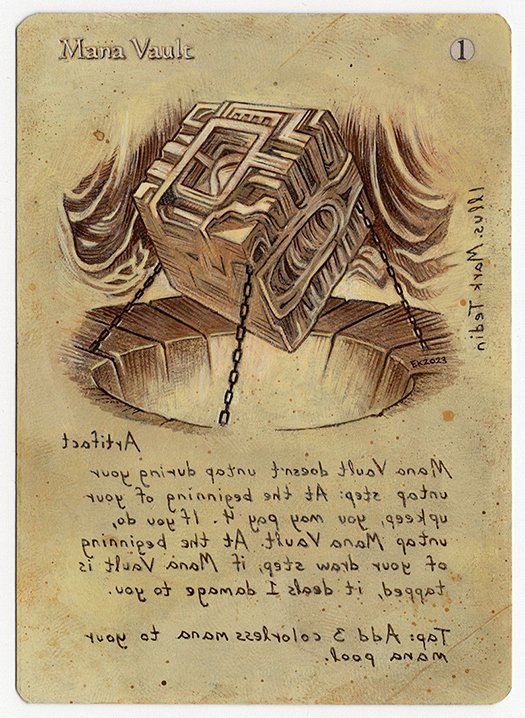 Mana Vault
1
Illus. Mark Tedin
EK2023
Artifact
Mana Vault doesn't untap during your
untap step: At the beginning of your
upkeep, you may pay 4. If you do,
untap Mana Vault. At the beginning
of your draw step, if Mana Vault is
tapped, it deals 1 damage to you.
Tap: Add 3 colorless mana to your
mana pool.